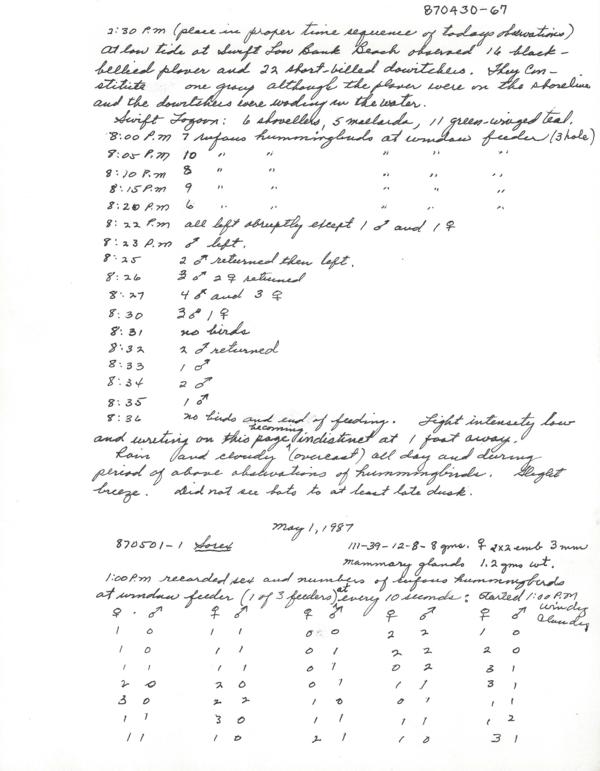 870430-67
2:30 P.M (place in proper time sequence of todays observations)
At low tide at Swift Low Bank Beach observed 16 black-
bellied plover and 22 short-billed dowitchers. They Con-
stitute one group although the plover were on the shoreline
and the dowitchers were wading in the water.
Swift Lagoon: 6 shovellers, 5 mallards, 11 green-winged teal.
8:00 P.M 7 rufous hummingbirds at window feeder (3 hole)
8:05 P.M 10 " " " " "
8:10 P.M 8 " " " " "
8:15 P.M 9 " " " " "
8:20 P.M 6 " " " " "
8:22 P.M all left abruptly except 1 ♂ and 1 ♀
8:23 P.M ♂ left.
8:25 2 ♂ returned then left.
8:26 3 ♂ 2 ♀ returned
8:27 4 ♂ and 3 ♀
8:30 3 ♂ 1 ♀
8:31 no birds
8:32 2 ♂ returned
8:33 1 ♂
8:34 2 ♂
8:35 1 ♂
8:36 no birds and end of feeding. Light intensity low
and writing on this page becoming indistinct at 1 foot away.
Rain and cloudy (overcast) all day and during
period of above observations of hummingbirds. Slight
breeze. Did not see bats to at least late dusk.
May 1, 1987
870501-1 Sorex 111-39-12-8-8 gms. ♀ 2x2 emb 3 mm
mammary glands 1.2 gms wt.
1:00 P.M recorded sex and numbers of rufous hummingbirds
at window feeder (1 of 3 feeders) at every 10 seconds: Started 1:00 P.M
windy
cloudy
♀ ♂ ♀ ♂ ♀ ♂ ♀ ♂ ♀ ♂
1 0 1 1 0 0 2 2 1 0
1 0 1 1 0 1 2 2 2 0
1 1 1 1 0 1 0 2 3 1
2 0 2 0 0 1 1 1 3 1
3 0 2 2 1 0 0 1 1 1
1 1 3 0 1 1 1 1 1 2
1 1 1 0 2 1 1 0 3 1